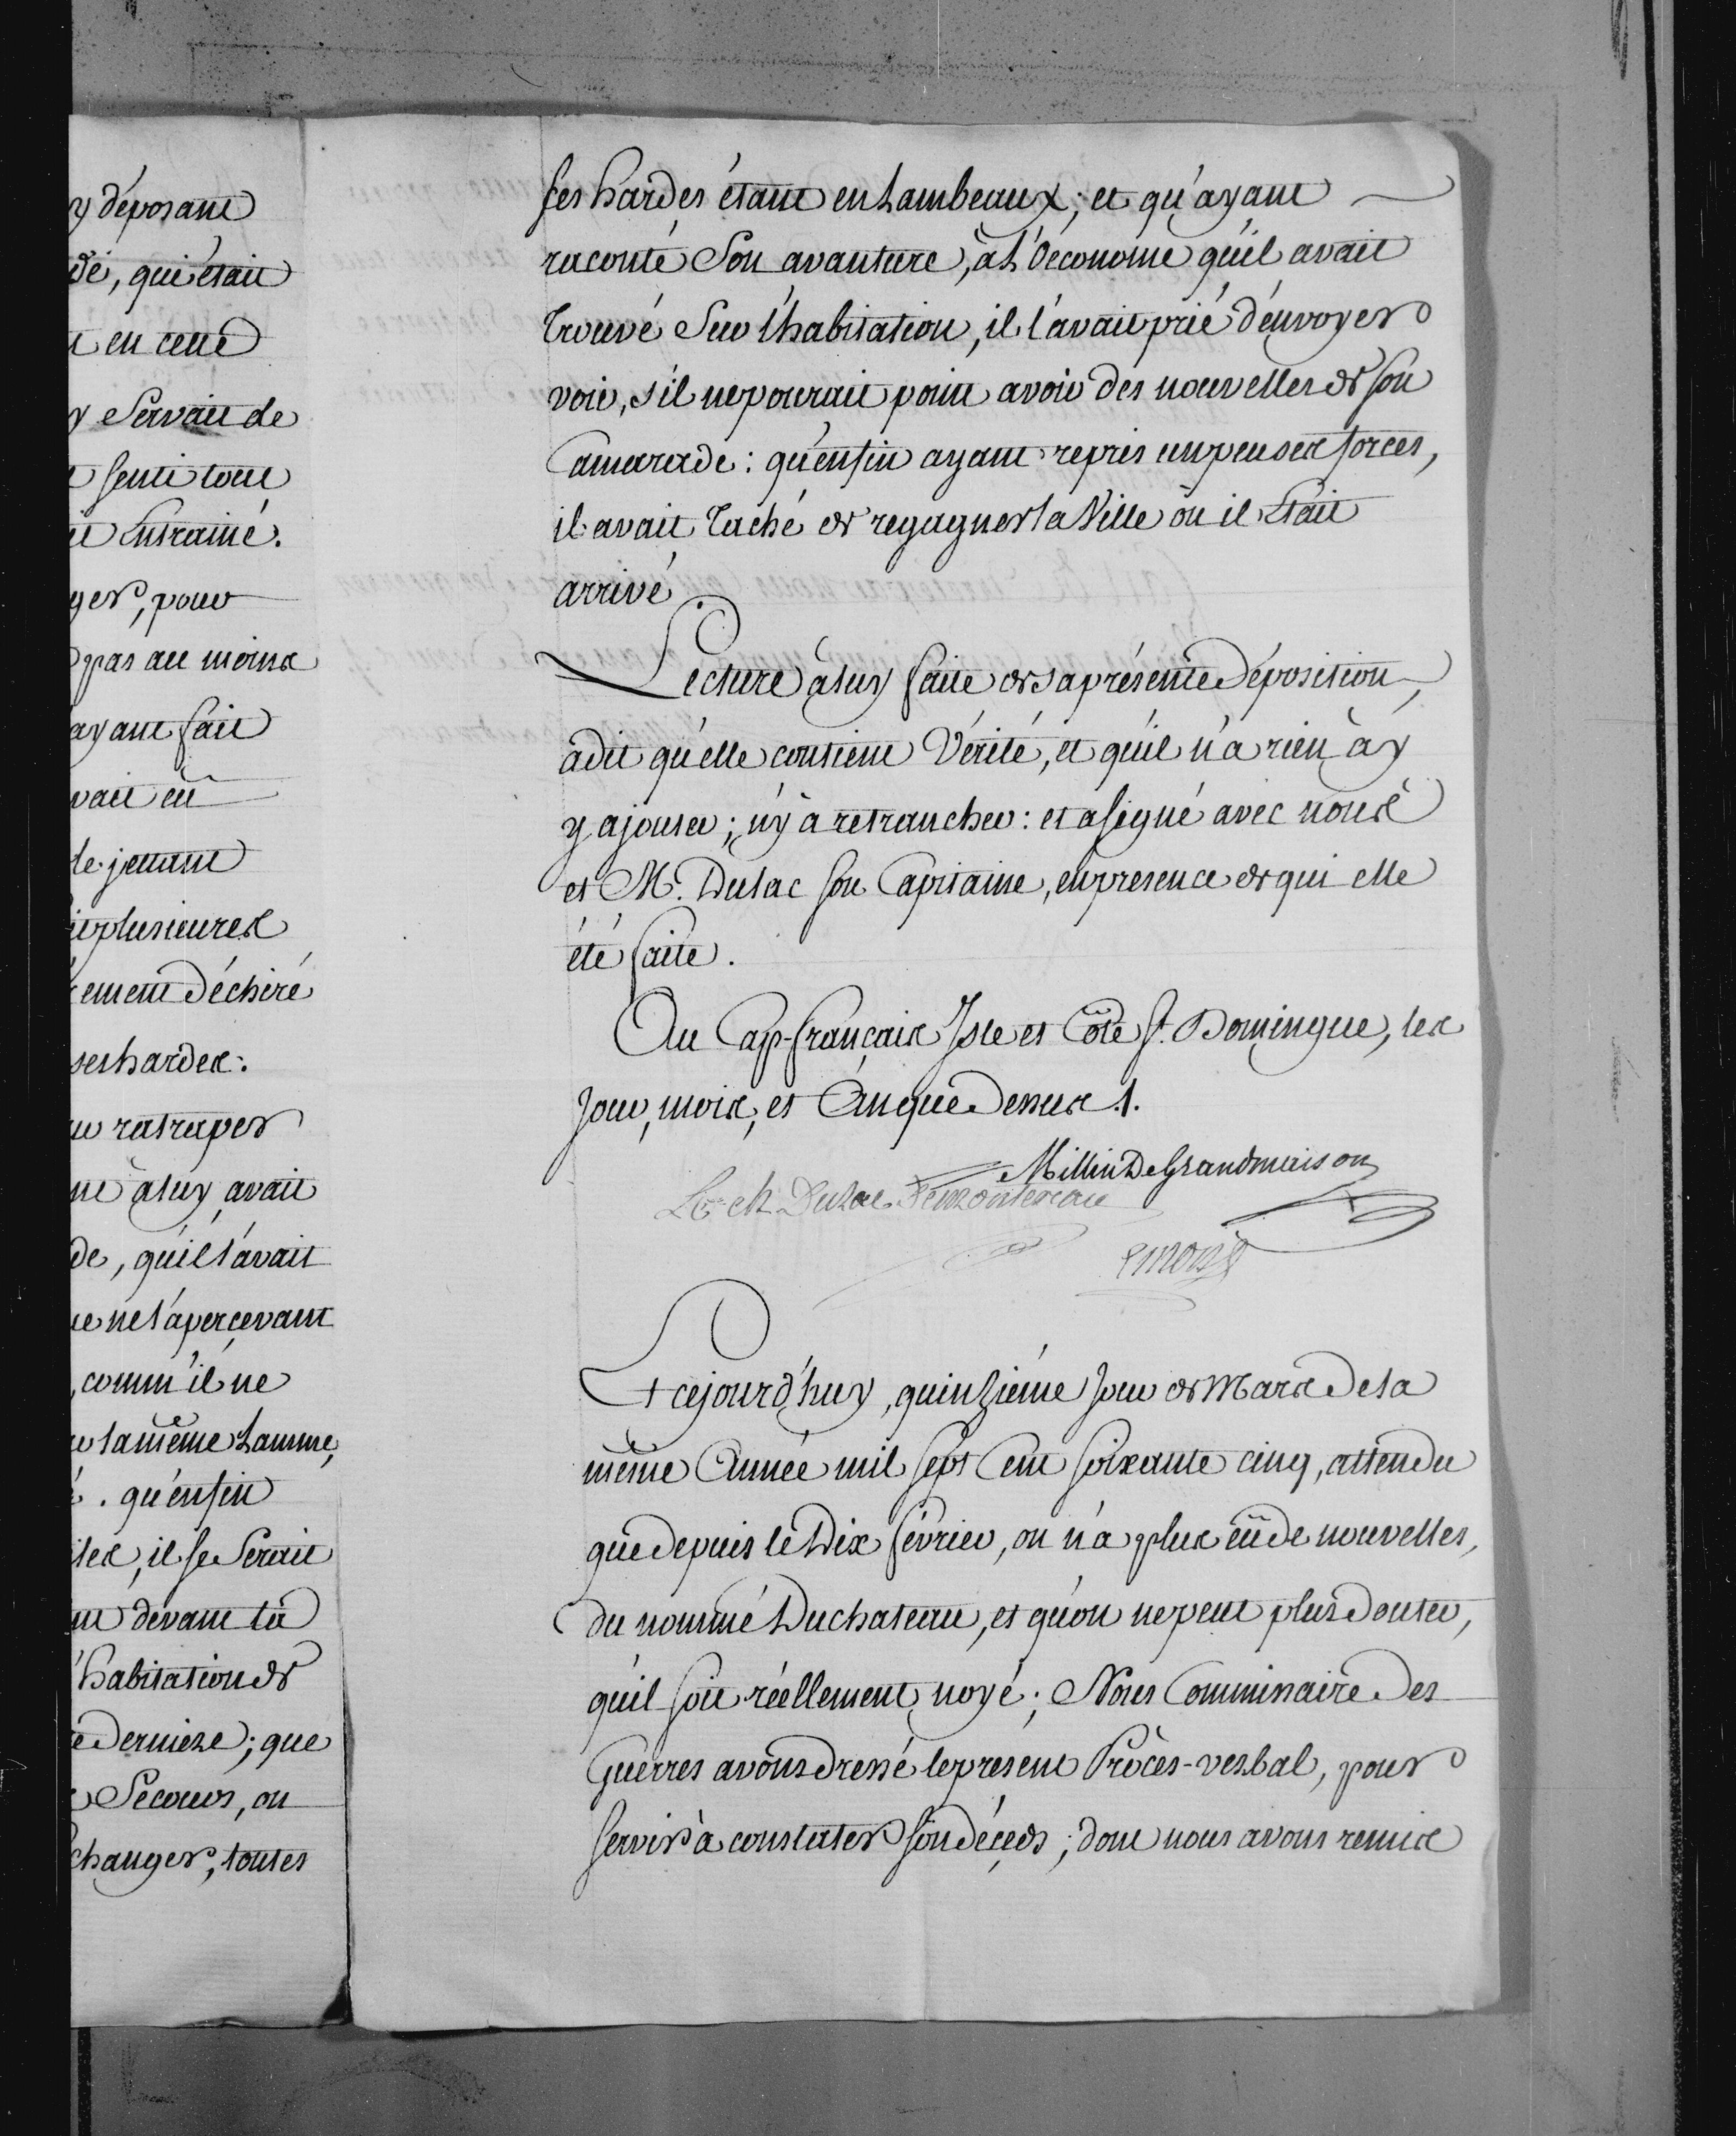 y déposant
dé, qui était
t en cette
y Servait de
t senti tout
it Entrainé.
ger, pour
pas au moins
ayant fait
vait eû
le jettant
plusieurs
rement Déchiré
ses hardes:
ratraper
à luy avait
de, qu'il l'avait
ue ne l'apercevant
, comm'il ne
la même Lamme,
é. qu'enfin
les, il se Serait
devant la
l'habitation de
e Derniere; que
Secours, ou
changer, toutes
ses hardes étant en Lambeaux; et qu'ayant
raconté Son avanture, à L'Œconome qu'il avait
Trouvé Sur l'habitation, il l'avait prié d'envoyer
voir, s'il ne pourait point avoir des nouvelles de son
Camarade: qu'enfin ayant repris un peu ses forces,
il avait Taché de regagner la Ville où il Etait
arrivé.
Lecture à luy faite de sa présente Déposition,
a dit qu'elle contient Vérité, et qu'il n'a rien à y
y ajouter; n'y à retrancher: et a signé avec nous
et M. Dulac son Capitaine, en presence de qui elle
été faite.
Au Cap-français Isle et Côte St. Domingue, les
Jour, mois, et An que Dessus ./.
Millin De Grandmaison
Le ch Dulac
Et cejourd'huy, quinzième Jour de Mars De la
même Année mil sept Cent soixante cinq, attendu
que depuis le Dix février, on n'a plus eû de nouvelles,
du nommé Duchateau, et qu'on ne peut plus Douter,
qu'il soit réellement noyé; Nous Commissaire Des
Guerres avons dressé le present Procès-verbal, pour
servir à constater son déçeds; dont nous avons remis